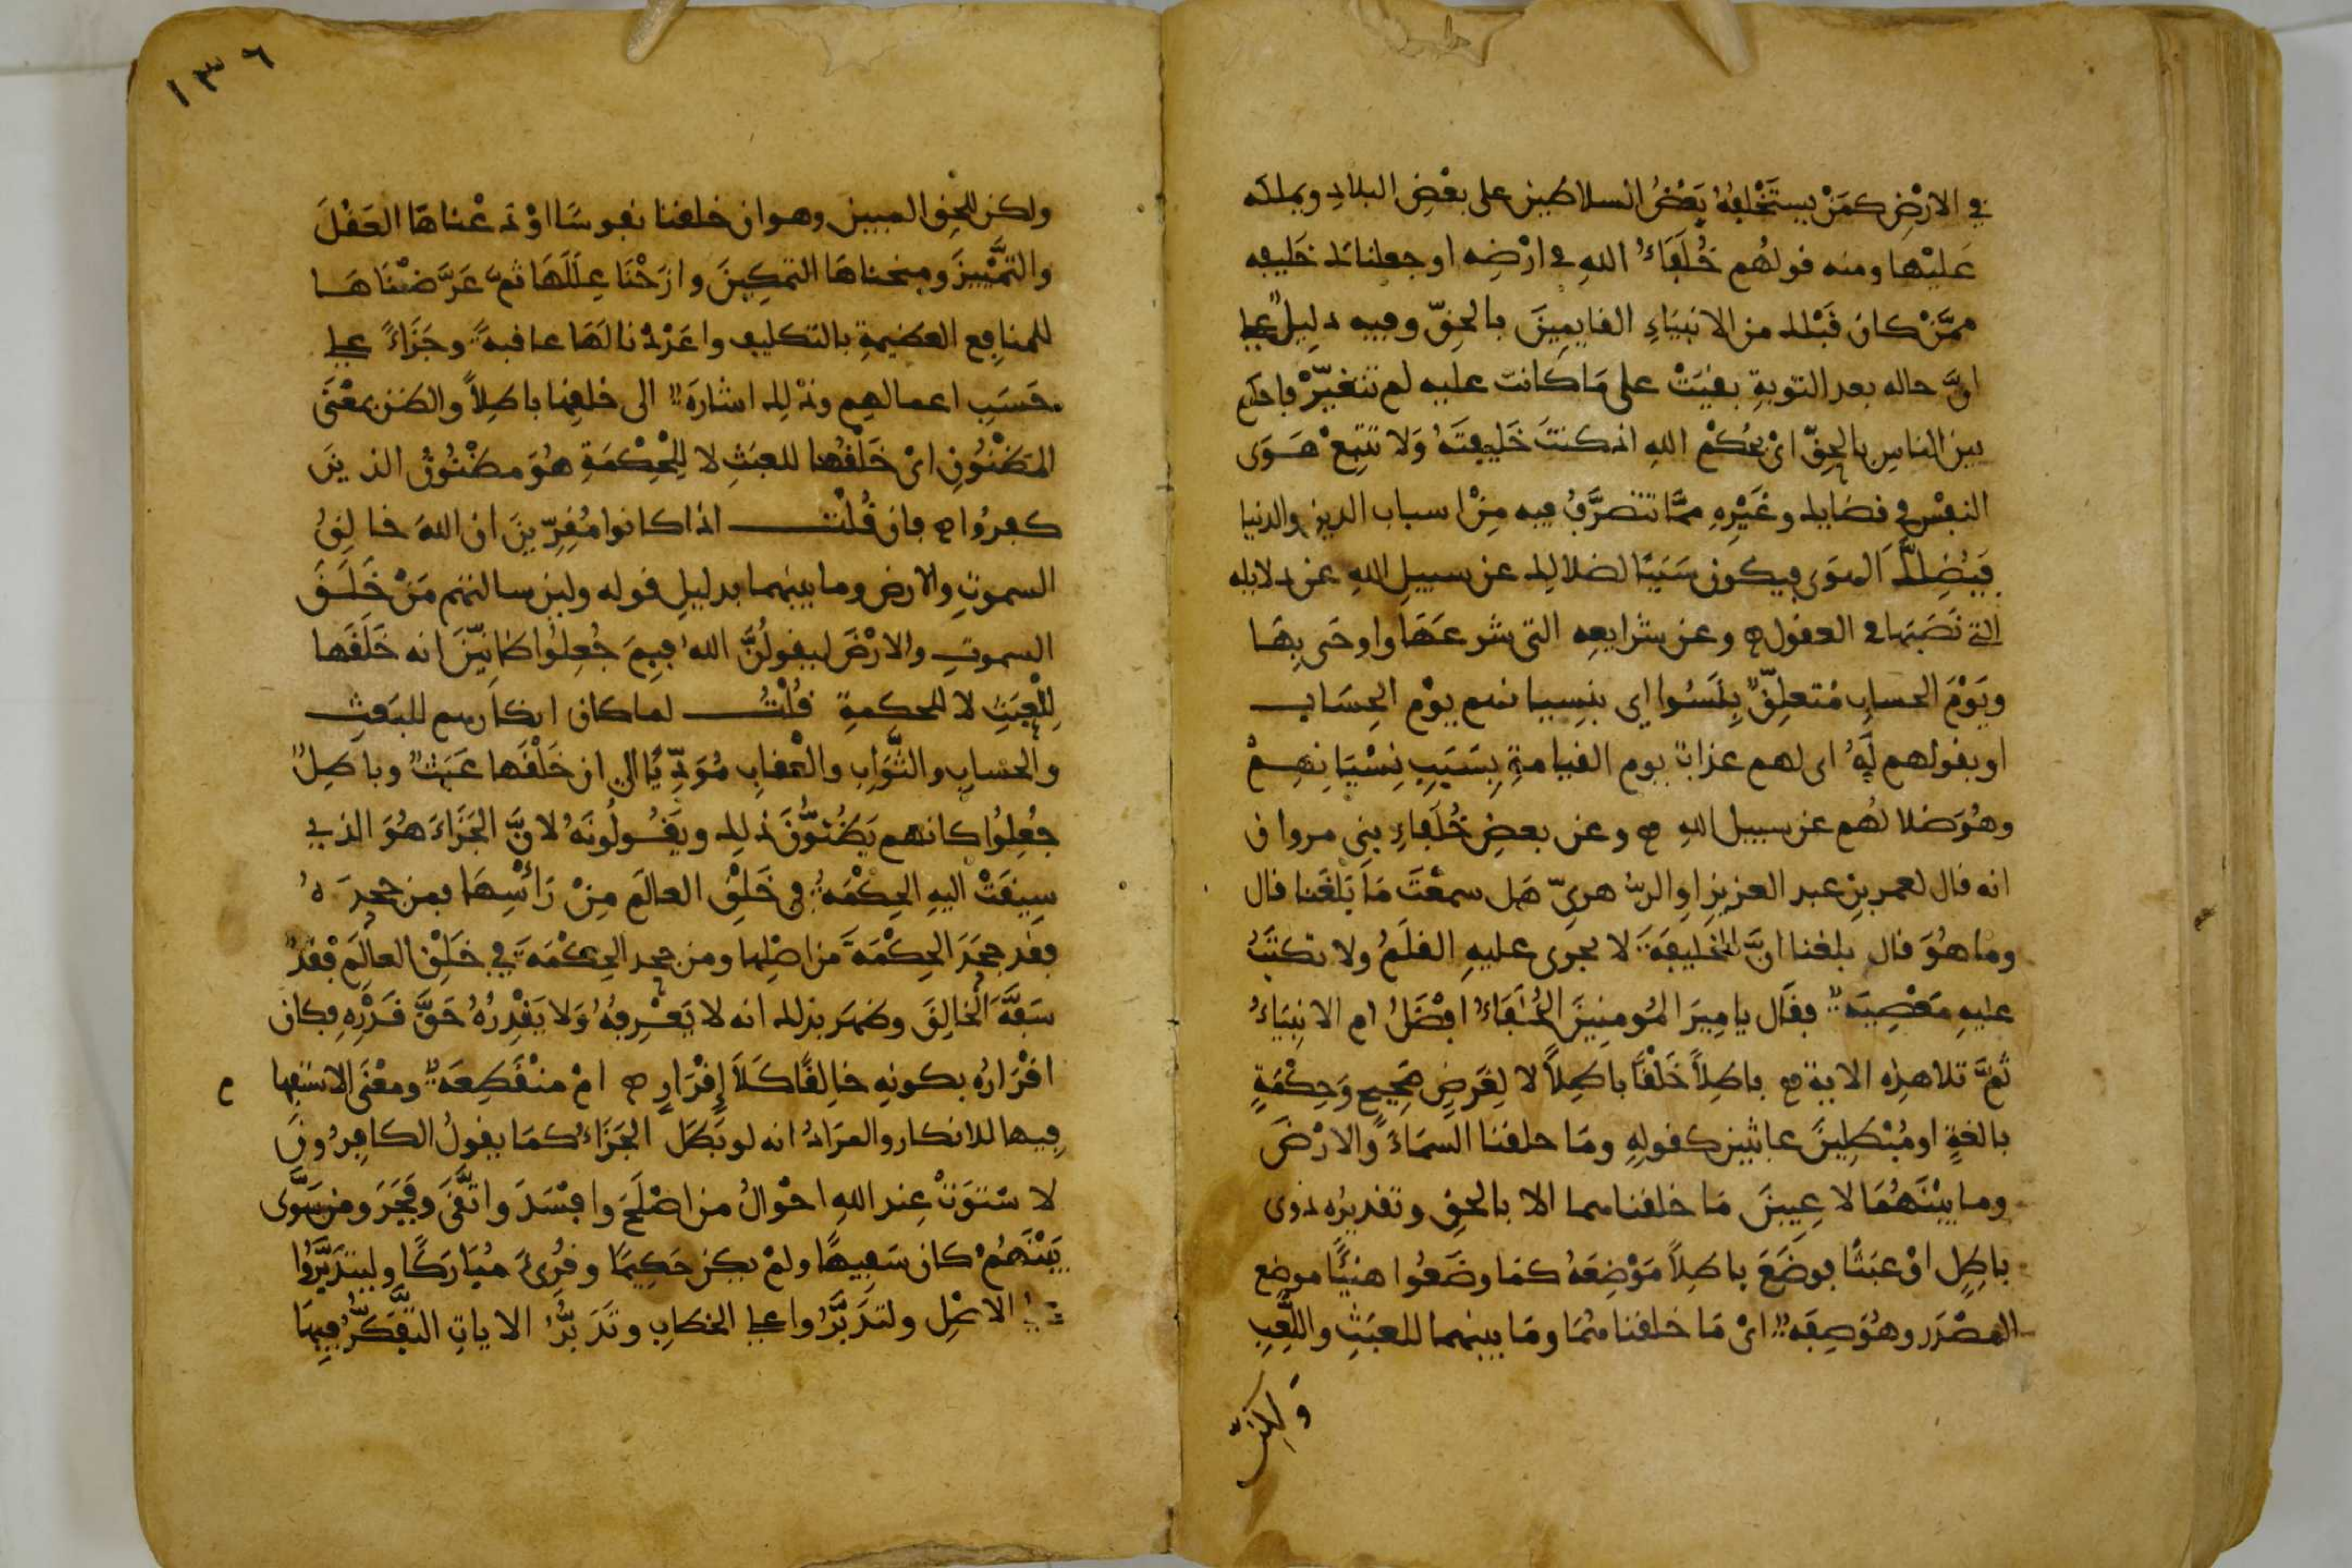 في الارْضِ كمَنْ يستَخْلِفُهُ بَعْضُ السلاطين على بعْضِ البلادِ ويملكه
عَليْها ومنه قولهُم خُلَفَاءُ اللهِ في ارْضِه او جعلناك خَليفه
ممَّنْ كان قَبْلك من الانبيَاءِ القايمِينَ بالحقِّ وفيه دليلٌ على
انَّ حاله بعد التوبةِ بقيَتْ على مَا كانت عليه لم تتغيّرْ فاحكم
بين الناسِ بالحقِّ ايْ بحُكْمِ اللهِ اذ كنتَ خَليفتَهُ وَلا تتبِعْ هَوَى
النفْس في قضايك وغَيْرِهِ ممَّا تتصرَّفُ فيه مِنْ اسباب الدين والدنيا
فيُضِلَّكَ الهوَى فيكون سَبَبًا لضلالك عن سبيلِ اللهِ عن دلايله
التي نَصَبَها في العقول وعن شرايعِه التي شرعَهَا واوحَى بِهَا
ويَوْمَ الحسابِ مُتعلِقٌ بِنَسُوا اي بنِسيانهم يوْم الحِسَابِ
او بقولهم لَهُ اى لهم عذابٌ يوم القيامةِ بِسَبَبِ نِسْيَانِهِمْ
وهُوَ ضلالهُم عن سبيل اللهِ وعن بعضِ خُلَفاءِ بنِى مروان
انه قال لعمر بنِ عبد العزيزِ او الزهرىّ هَل سمعْتَ مَا بَلغَنا قال
وما هُوَ قال بلغنا انَّ الخليفَةَ لا يجرى عليهِ القلَمُ ولا تكتبُ
عليهِ مَعْصِيَةٌ فقَال يا مِيرَ المُومنِينَ الخُلَفَاءُ افْضَلُ ام الانبيَاءُ
ثُمَّ تلا هذِه الاية باطِلاً خَلْقًا باطِلاً لا لِغَرَضٍ صَحِيحٍ وَحِكْمَةٍ
بالغةٍ او مُبْطِلِينَ عابثين كقولهِ ومَا خلقنا السمَاءَ والارْضَ
وما بيْنَهُمَا لاعِبينَ مَا خلقناهما الا بالحقِ وتقديرُه ذوى
باطِلٍ اوْ عبَثًا فوضَعَ باطِلاً مَوْضِعَهُ كمَا وضَعُوا هنيًا موضِع
المصْدَر وهُوَ صِفَه ايْ مَا خلقناهُمَا ومَا بينهما للعبَثِ واللّعِبِ
وَلكِنْ
١٣٦
ولكن للحقِ المبين وهو ان خلقنا نفوسًا اوْدعْناهَا العَقْلَ
والتَّمْييزَ ومنحناهَا التمكِينَ وازَحْنَا عِلَلَهَا ثمّ عَرَّضْنَاهَا
للمنافِع العظيمةِ بالتكليفِ واعْدَدْنا لهَا عاقبةً وجَزَاءً على
حَسَبِ اعمالهِم وذلك اشارَة الى خلقِها باطِلاً والظن بمعْنَى
المَظنُونِ ايْ خَلْقُها للعبَثِ لا لِلْحِكْمَةِ هُوَ مظنُونُ الذينَ
كفرُوا فان قُلْتَ اذا كانوا مُقِرّينَ ان اللهَ خالِقُ
السموتِ والارضِ وما بينهما بدليلِ قوله ولين سالتهم مَنْ خَلَقَ
السموتِ والارْضَ ليقولُنَّ اللهُ فبِمَ جُعِلُوا ظانِّينَ انه خَلَقَها
لِلْعبَثِ لا للحكمةِ قُلْتُ لما كان انكارهم للبَعْثِ
والحسَابِ والثَّوَابِ والعقابِ مُوَدِّيًا الى ان خَلْقَها عَبَثٌ وباطِلٌ
جُعِلُوا كانهم يَظنُّونَ ذلك ويَقُولُونَهُ لانَّ الجَزَاءَ هُوَ الذي
سِيقَتْ اليهِ الحِكْمَةُ في خَلقِ العالَمِ مِنْ رَأسِهَا فمن جحدَهُ
فقد جحَدَ الحِكْمَةَ من اصْلِها ومن جحد الحِكْمَةَ في خَلْقِ العالَمِ فقدْ
سَفَّهَ الخالِقَ وظهَر بذلك انه لا يَعْرِفُهُ وَلا يَقْدِرُهُ حَقَّ قَدْرِهِ فكان
اقْرَارُه بكونِهِ خالِقًا كَلاَ إقْرَارٍ امْ منْقَطِعَة ومعْنَى الاستفها م
فِيها للانكار والمرَادُ انه لو بَطَلَ الجَزَاءُ كمَا يقولُ الكافِرُونَ
لاسْتوَتْ عِند اللهِ احْوَالُ من اصْلَحَ وافْسَدَ واتَّقَى وفَجَرَ ومن سَوَّى
بَيْنَهُمْ كان سَفِيهًا ولمْ يكن حَكِيمًا وقُرِئَ مُبَارَكًا وليتدَبَّرُوا
على الاصْلِ ولتدَبَّرُوا على الخطابِ وتَدَبُّرُ الاياتِ التفَكُّرُ فِيهَا